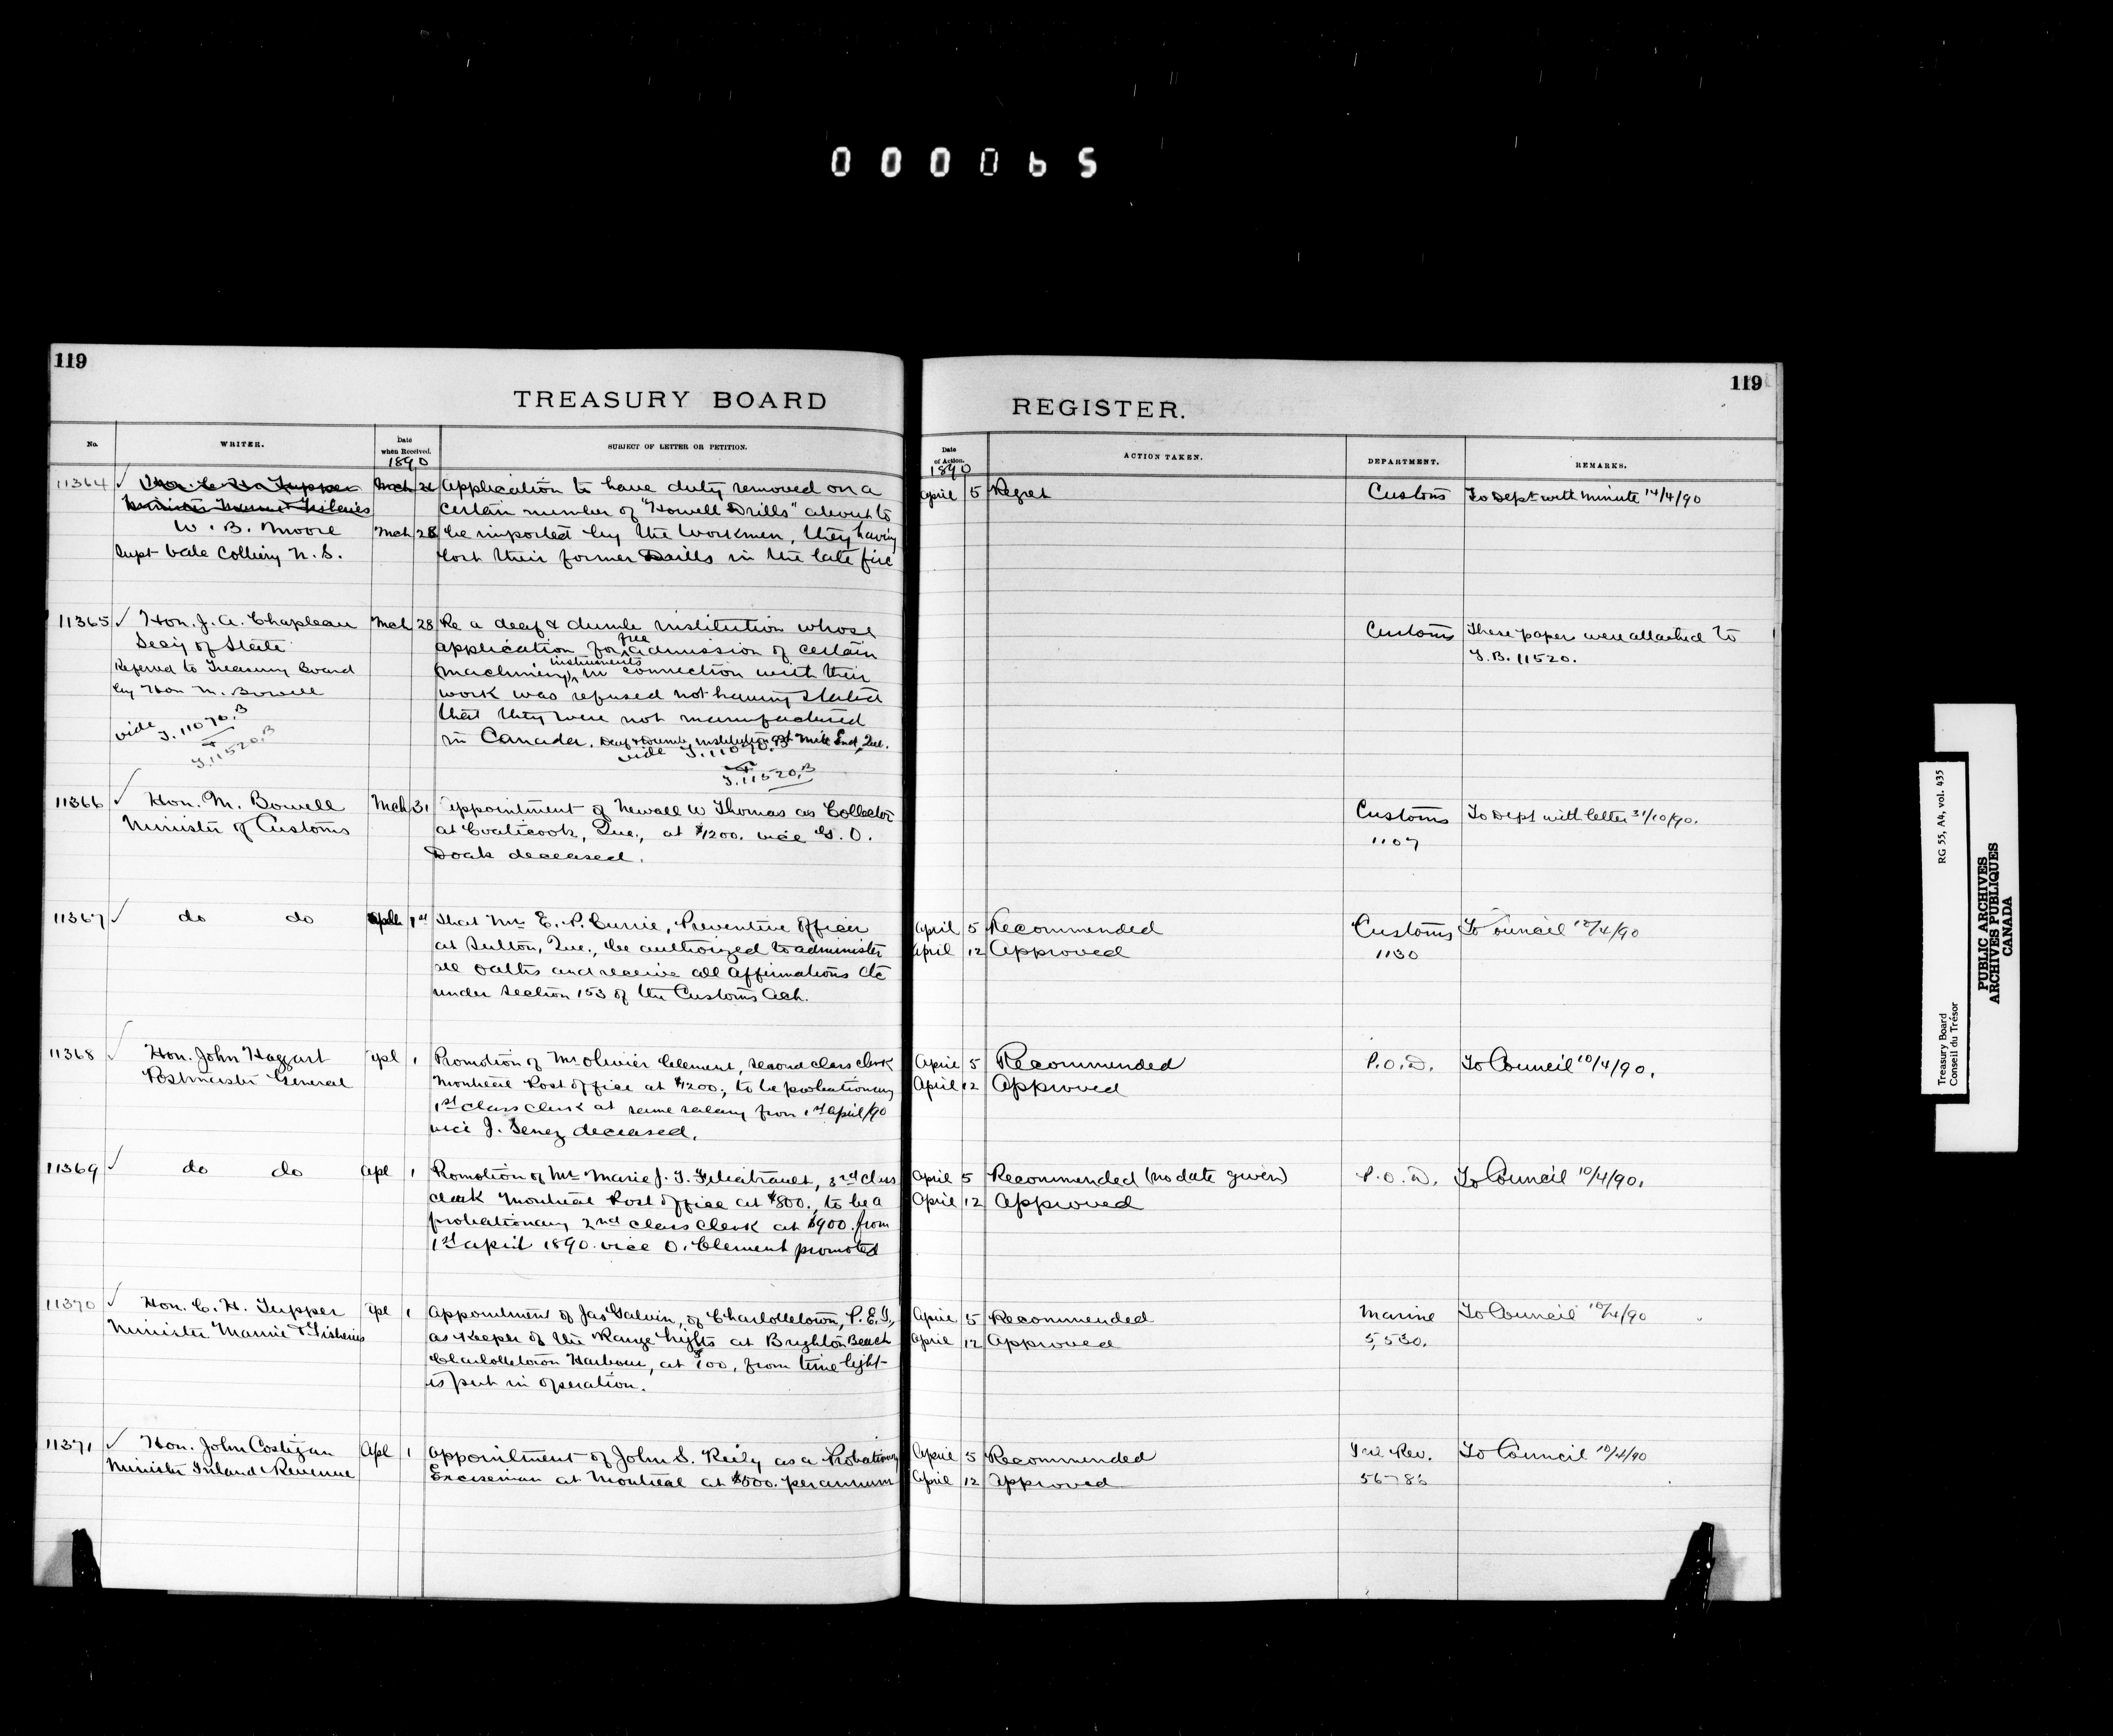 000065
119
TREASURY BOARD
No.
WRITER.
Date
when Received.
1890
SUBJECT OF LETTER OR PETITION.
11364 ✓ Hon. C. H. Tupper Mch
Minister Marine & Fisheries
W. B. Moore Mch 28
Supt Vale Colliery N.S.
Application to have duty removed on a
certain number of "Howell Drills" about to
be imported by the workmen, they having
lost their former Drills in the late fire
11365 ✓ Hon. J. A. Chapleau Mch 28
Sec'y of State
Referred to Treasury Board
by Hon M. Bowell
vide T. 11070.B
+
T. 11520.B
Re a deaf & dumb institution whose
application for free admission of certain
machinery, instruments in connection with their
work was refused not having stated
that they were not manufactured
in Canada. Deaf & Dumb institution at Mile End, Que.
vide T. 11070.B
+
T. 11520.B
11366 ✓ Hon. M. Bowell Mch 31
Minister of Customs
Appointment of Newall W Thomas as Collector
at Coaticook, Que., at $1200. vice G. O.
Doak deceased.
11367 ✓ do do Apl 1st
That Mr E. P. Currie, Preventive Officer
at Sutton, Que., be authorized to administer
all oaths and receive all affirmations etc
under section 153 of the Customs Act.
11368 ✓ Hon. John Haggart Apl 1
Postmaster General
Promotion of Mr Olivier Clement, second class clerk
Montreal Post office at $1200., to be probationary
1st class clerk at same salary from 1st April/90
vice J. Tenez deceased.
11369 ✓ do do Apl 1
Promotion of Mr Marie J. T. 3rd class
clerk Montreal Post office at $800., to be a
probationary 2nd class clerk at $900. from
1st April 1890. vice O. Clement promoted
11370 ✓ Hon. C. H. Tupper Apl 1
Minister Marine & Fisheries
Appointment of Jas Galvin, of Charlottetown, P.E.I.,
as keeper of the Range lights at Brighton Beach
Charlottetown Harbour, at $100, from time light
is put in operation.
11371 ✓ Hon. John Costigan Apl 1
Minister Inland Revenue
Appointment of John S. Reily as a Probationary
Exciseman at Montreal at $500. per annum
119
REGISTER.
Date
of Action.
1890
ACTION TAKEN.
DEPARTMENT.
REMARKS.
April 5 Regret Customs To Dept with minute 14/4/90
Customs These papers were attached to
T.B. 11520.
Customs To Dept with letter 31/10/90.
1107
April 5 Recommended Customs To Council 10/4/90
April 12 Approved 1130
April 5 Recommended P.O.D. To Council 10/4/90.
April 12 Approved
April 5 Recommended (no date given) P.O.D. To Council 10/4/90.
April 12 Approved
April 5 Recommended Marine To Council 10/4/90
April 12 Approved 5,530.
April 5 Recommended Inl Rev. To Council 10/4/90
April 12 Approved 56786
Treasury Board RG 55, A4, vol. 435
Conseil du Trésor
PUBLIC ARCHIVES
ARCHIVES PUBLIQUES
CANADA